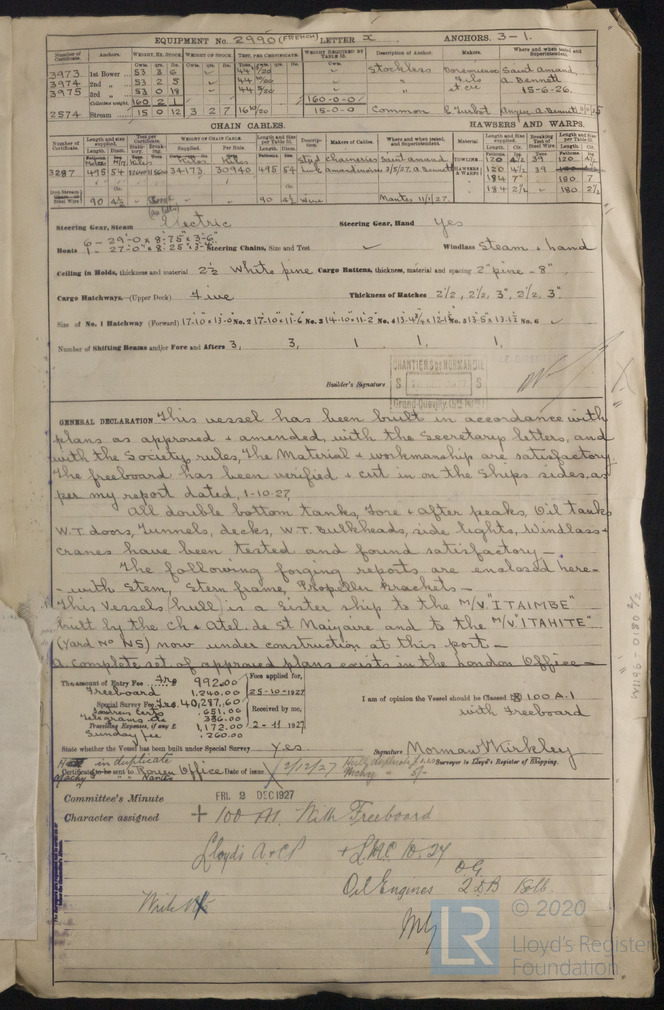 EQUIPMENT No. 2990 (FRENCH) LETTER x ANCHORS. 3-1.
Number of Certificate. Anchors. WEIGHT, EX. STOCK WEIGHT OF STOCK TEST, PER CERTIFICATE. WEIGHT REQUIRED BY TABLE 53. Description of Anchor. Makers. Where and when tested and Superintendent.
3973 1st Bower 53 3 6 Stockless Saint Amand
3974 2nd 53 2 5 A. Bennett
3975 3rd 53 0 18 15-6-26.
Collective weight. 160 2 1 160-0-0
2574 Stream 15 0 12 3 2 7 15-0-0 Common
CHAIN CABLES. HAWSERS AND WARPS.
3287 495 54 34173 30940 495 54 Saint Amand A. Bennett
TOWLINE 120 4½ 39 120
HAWSERS & WARPS 120 4½ 39
184 7" 180 7
184 2½ 180 2½
Steel Wire 90 4½ 90 4½ Wire Nantes 11/1/27.
Steering Gear, Steam Electric Steering Gear, Hand Yes
Boats 6 - 29-0 x 8.75 x 3-6
1 - 27.0 x 8.25 x 3-6 Steering Chains, Size and Test ✓ Windlass Steam & hand
Ceiling in Holds, thickness and material 2½ White pine Cargo Battens, thickness, material and spacing 2" pine - 8"
Cargo Hatchways.—(Upper Deck) Five Thickness of Hatches 2½, 2½, 3", 2½, 3"
Size of No. 1 Hatchway (Forward) 17-10 x 13-0 No. 2 17-10 x 11-6 No. 3 14-10 x 11-2 No. 4 13-4¾ x 12-1 No. 5 13-5 x 13-1½ No. 6 ✓
Number of Shifting Beams and/or Fore and Afters 3, 3, 1 1, 1,
Builder's Signature
CHANTIERS DE NORMANDIE
Grand-Quevilly
GENERAL DECLARATION. This vessel has been built in accordance with
plans as approved & amended, with the Secretary letters, and
with the Society rules, The Material & workmanship are satisfactory
The freeboard has been verified & cut in on the ships sides, as
per my report dated, 1-10-27,
All double bottom tanks, Fore & after peaks, Oil tanks
W.T. doors, Tunnels, decks, W.T. Bulkheads, side lights, Windlass &
cranes have been tested and found satisfactory —
The following forging reports are enclosed here-
- with Stem, Stern frame, Propeller Brackets —
This vessels (hull) is a Sister ship to the M/V "ITAIMBE"
built by the Ch & Atel. de St Nazaire and to the M/V "ITAHITE"
(Yard No N5) now under construction at this port —
A complete set of approved plans exists in the London Office —
The amount of Entry Fee Frs 992.00 Fees applied for,
Freeboard 1,240.00 25-10-1927
Special Survey Fee Frs. 40,287.60
651.00 Received by me,
Telegrams &c 336.00
Travelling Expenses, if any £ 1,172.00 2-11 1927
Sunday fee .260.00
I am of opinion the Vessel should be Classed ✠ 100 A-1
with Freeboard
State whether the Vessel has been built under Special Survey Yes Signature Norman Kirkley
Surveyor to Lloyd's Register of Shipping.
in duplicate
Certificate to be sent to Rouen Office Date of issue 2/12/27
Nantes
Committee's Minute FRI. 2 DEC 1927
Character assigned + 100 A1. With Freeboard
Lloyds A & CP + LMC 10.27
O.G.
Oil Engines 2 DB
Write
W1196-0180 2/2
© 2020
LR
Lloyd's Register
Foundation